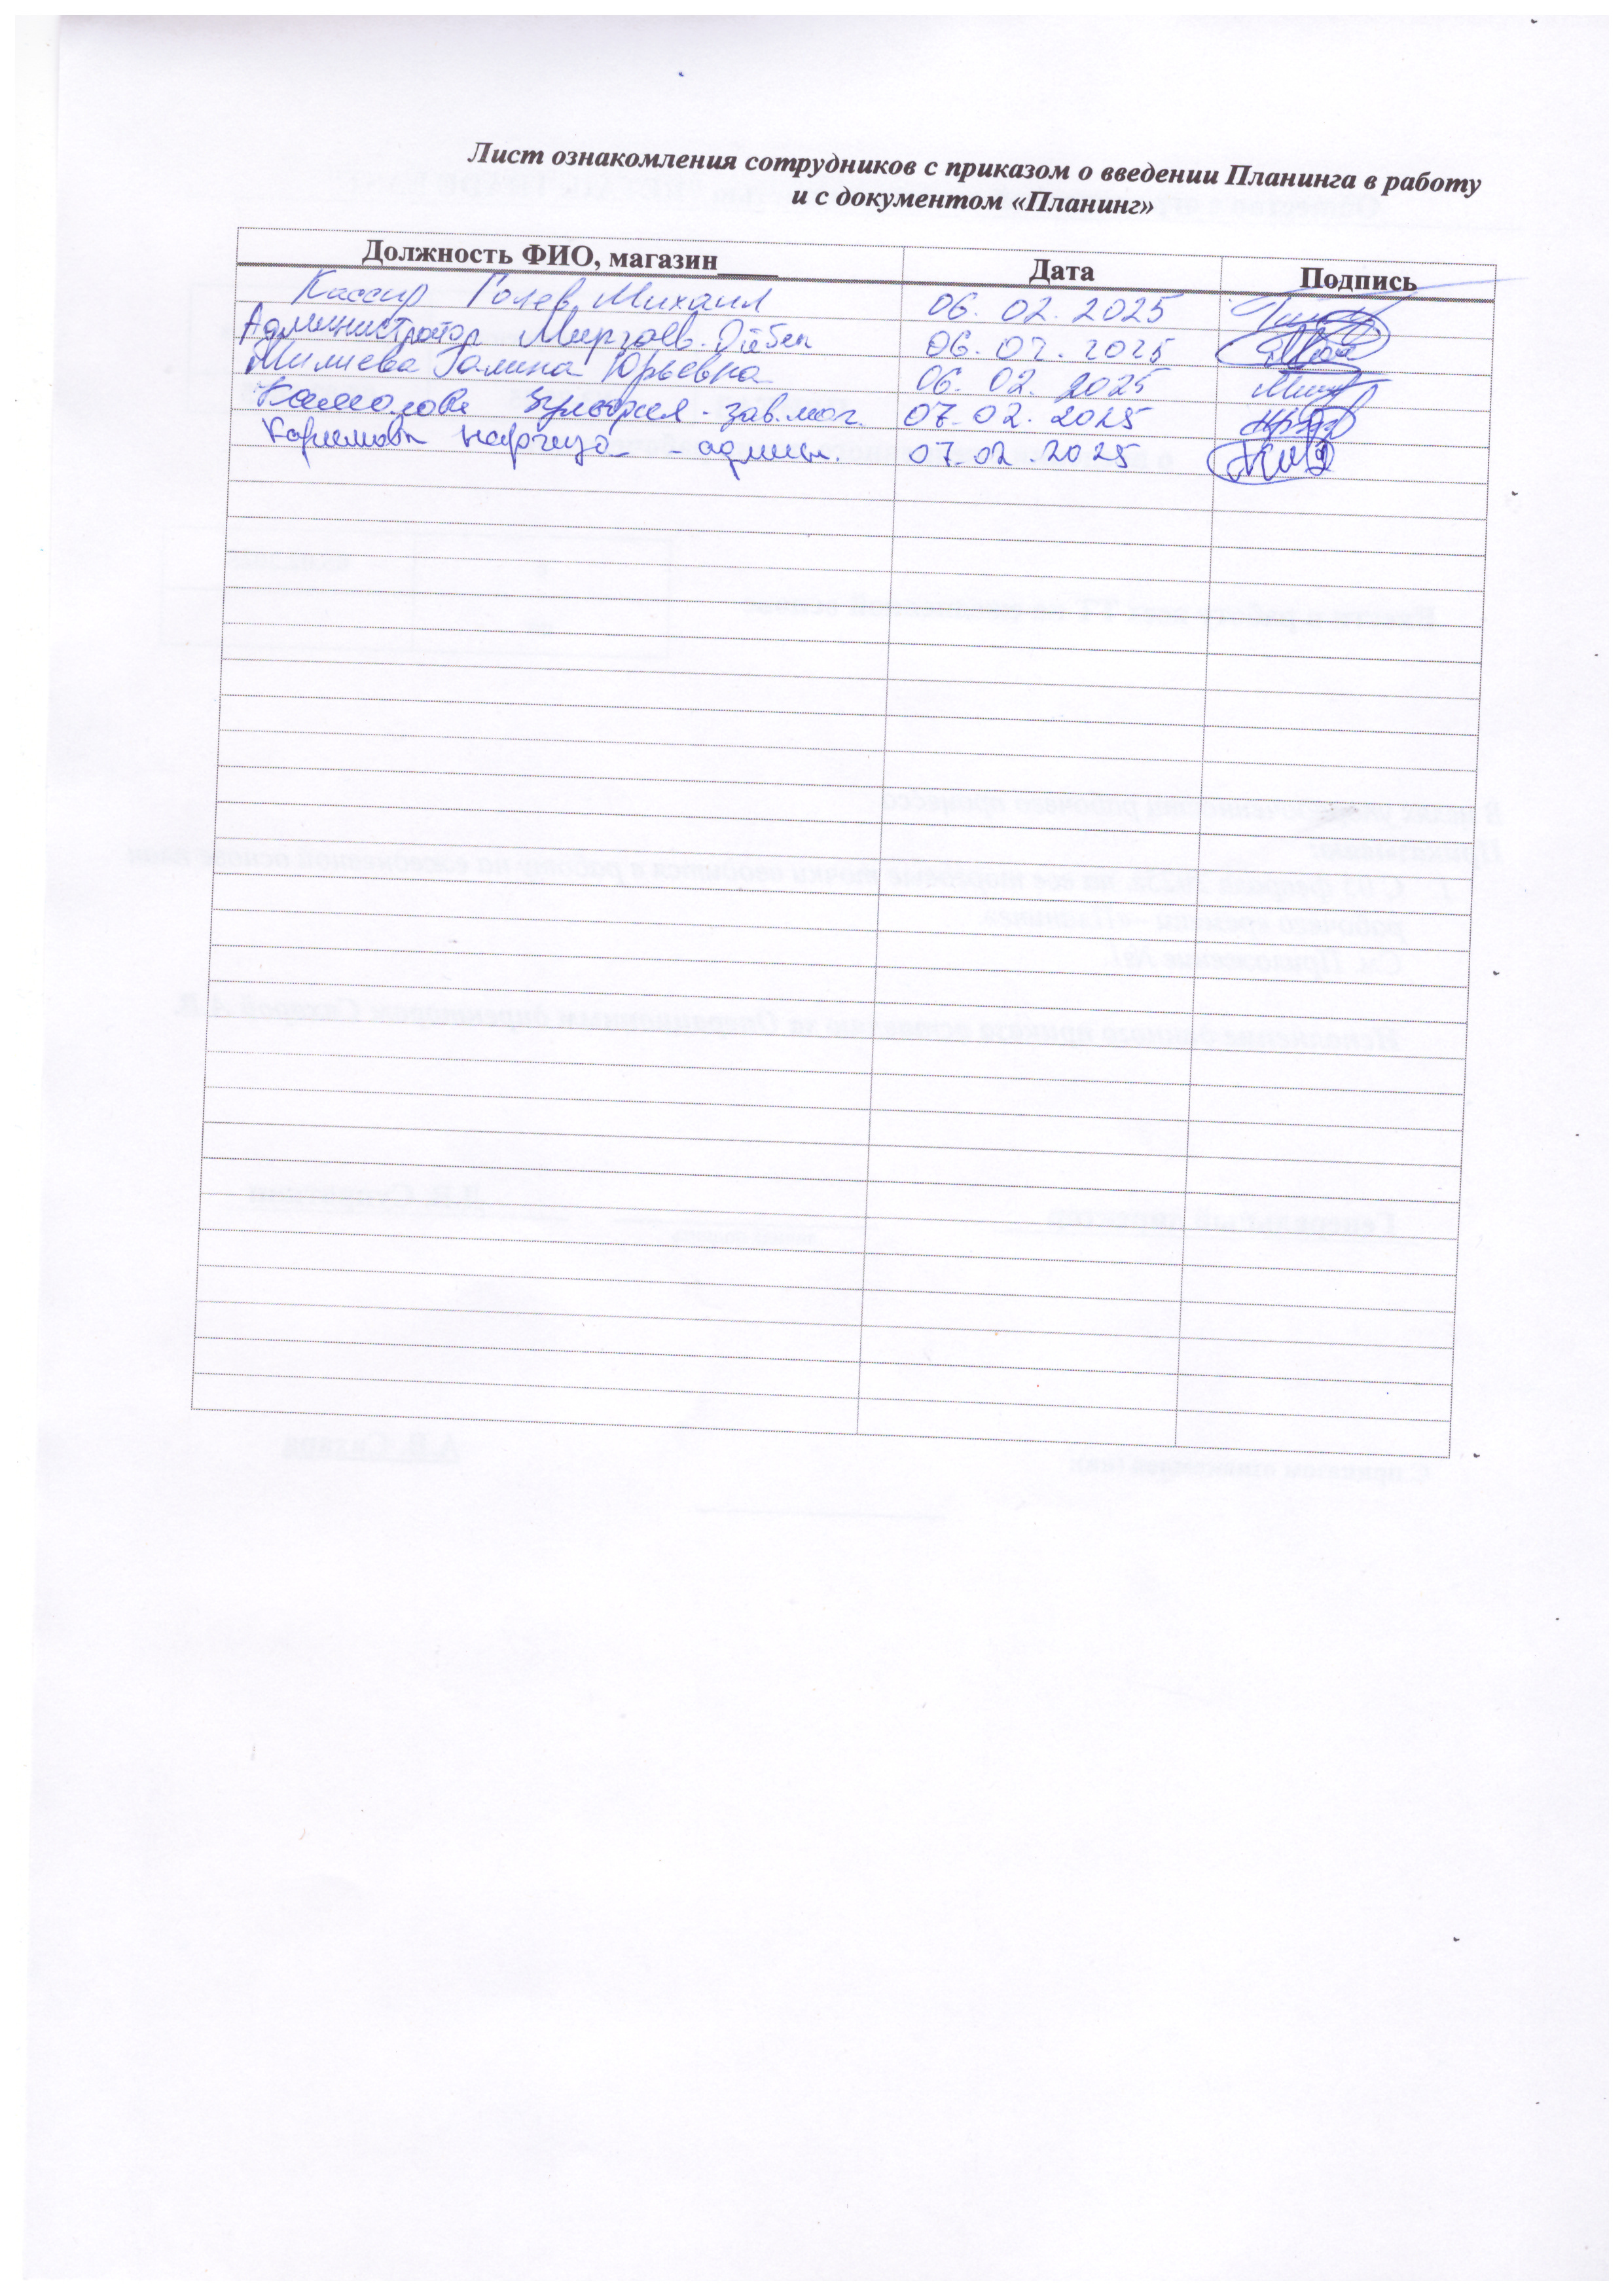 Лист ознакомления сотрудников с приказом о введении Планинга в работу
и с документом «Планинг»
Должность ФИО, магазин____ Дата Подпись
Кассир Голев Михаил 06.02.2025
Администратор Мирзаев. Ойбек 06.02.2025
Милиева Галина Юрьевна 06.02.2025
Камолова - зав.маг. 07.02.2025
Каримова Наргиза - админ. 07.02.2025